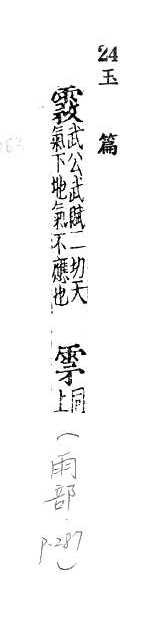 24 玉篇
霚 武公武賦二切天
氣下地氣不應也
雺 同
上
(雨部 p.287)